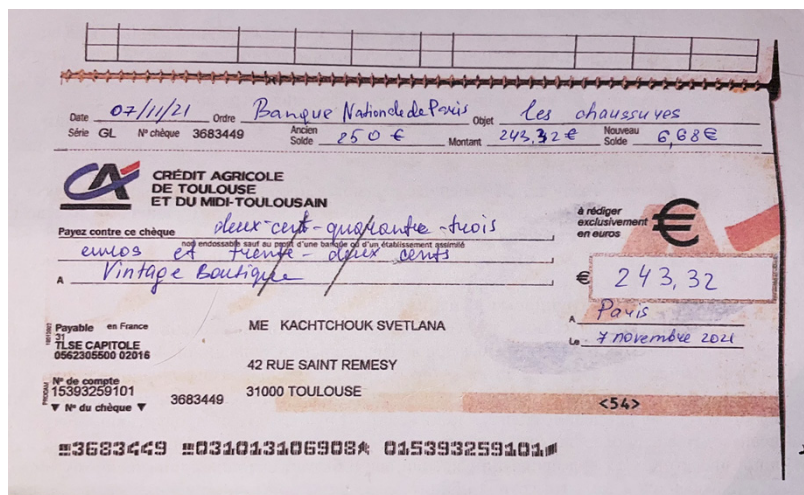 Date 07/11/21 Ordre Banque Nationale de Paris Objet les chaussures
Série GL N° chèque 3683449 Ancien Solde 250 € Montant 243,32 € Nouveau Solde 6,68 €
CA
CRÉDIT AGRICOLE
DE TOULOUSE
ET DU MIDI-TOULOUSAIN
à rédiger
exclusivement
en euros
€
Payez contre ce chèque deux-cent-quarante-trois
non endossable sauf au profit d'une banque ou d'un établissement assimilé
euros et trente-deux cents
A Vintage Boutique
€ 243,32
A Paris
Le 7 novembre 2021
Payable en France
31
TLSE CAPITOLE
0562305500 02016
ME KACHTCHOUK SVETLANA
42 RUE SAINT REMESY
31000 TOULOUSE
N° de compte
15393259101
▼ N° du chèque ▼ 3683449
<54>
⑈3683449 ⑈031013106908⑆ 015393259101⑈